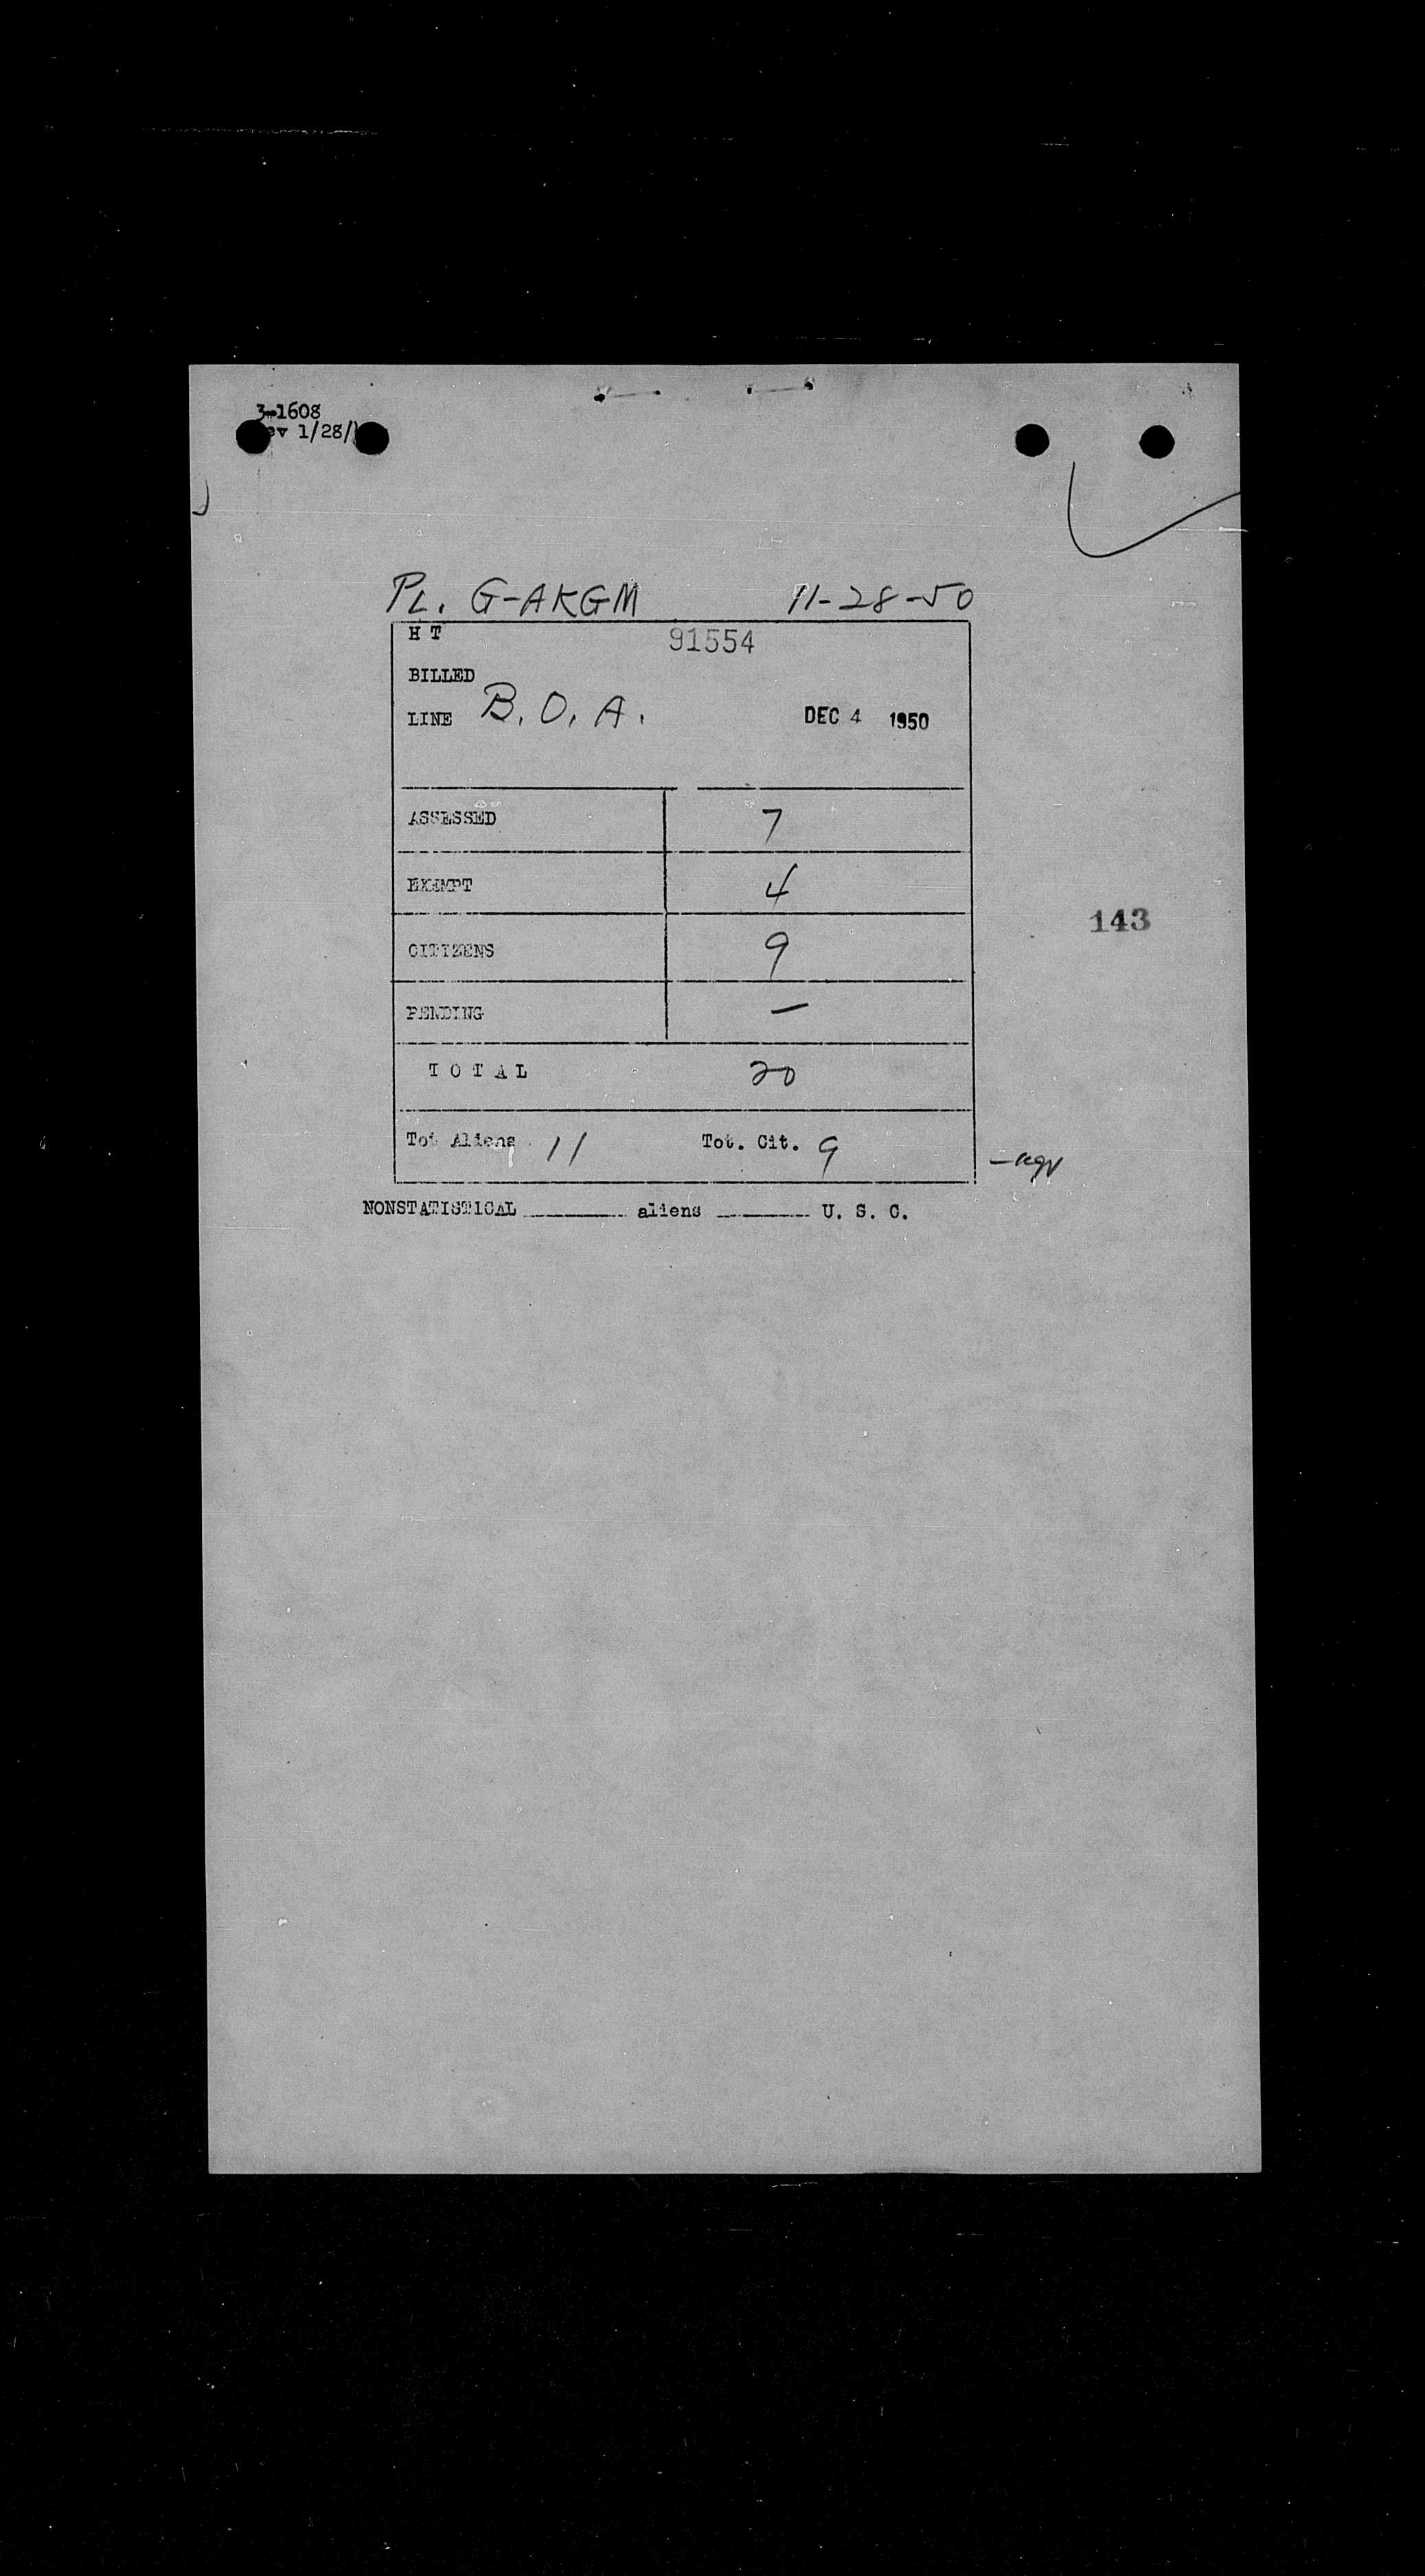 3-1608
ev 1/28/
PL. G-AKGM 11-28-50
H T 91554
BILLED
LINE B.O.A. DEC 4 1950
ASSESSED 7
EXEMPT 4
143
CITIZENS 9
PENDING —
TOTAL 20
Tot Aliens 11 Tot. Cit. 9
NONSTATISTICAL ________ aliens ________ U. S. C.